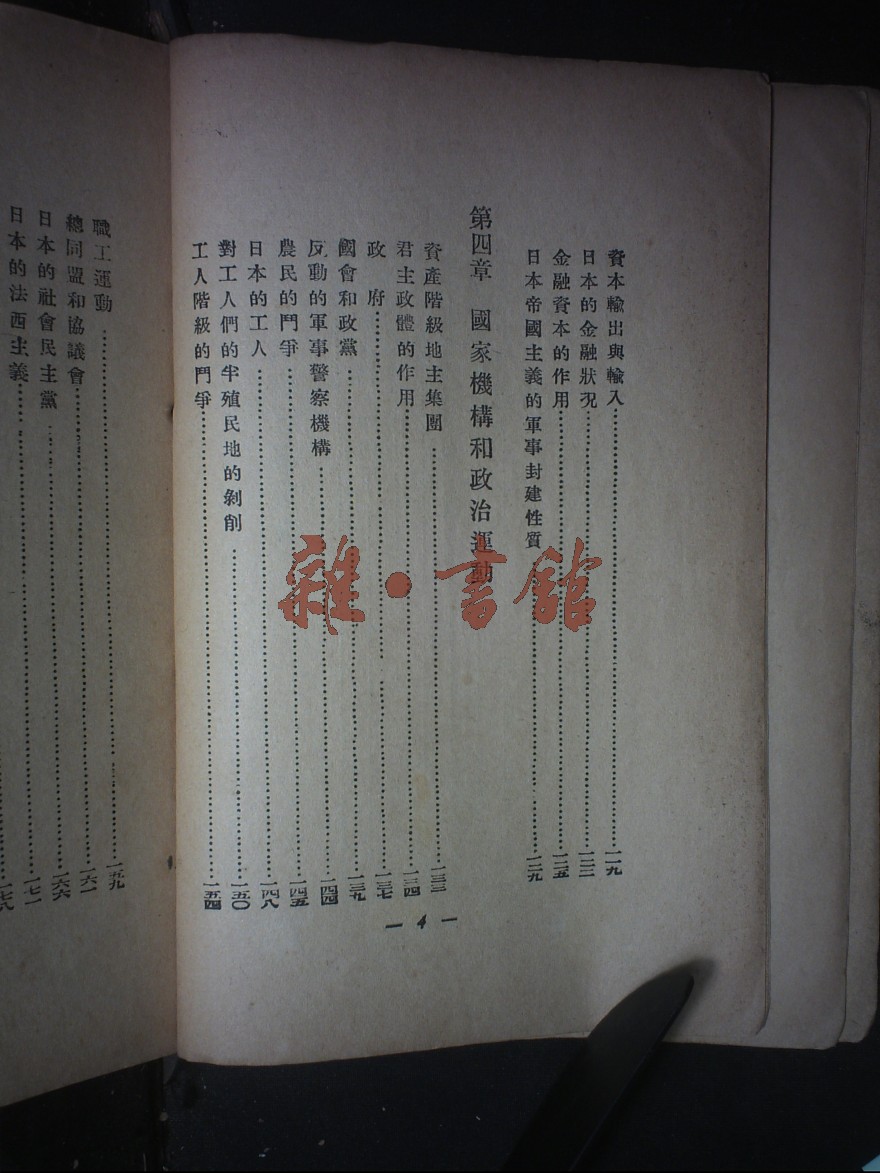 資本輸出與輸入……一一九
日本的金融狀况……一二三
金融資本的作用……一二五
日本帝國主義的軍事封建性質……一二九
第四章 國家機構和政治運動
資產階級地主集團……一三三
君主政體的作用……一三四
政 府……一三七
國會和政黨……一三九
反動的軍事警察機構……一四四
農民的鬥爭……一四五
日本的工人……一四八
對工人們的半殖民地的剝削……一五〇
工人階級的鬥爭……一五四
— 4 —
職工運動……一五九
總同盟和協議會……一六一
日本的社會民主黨……一六六
日本的法西主義……一七一
一七八
雜·書館